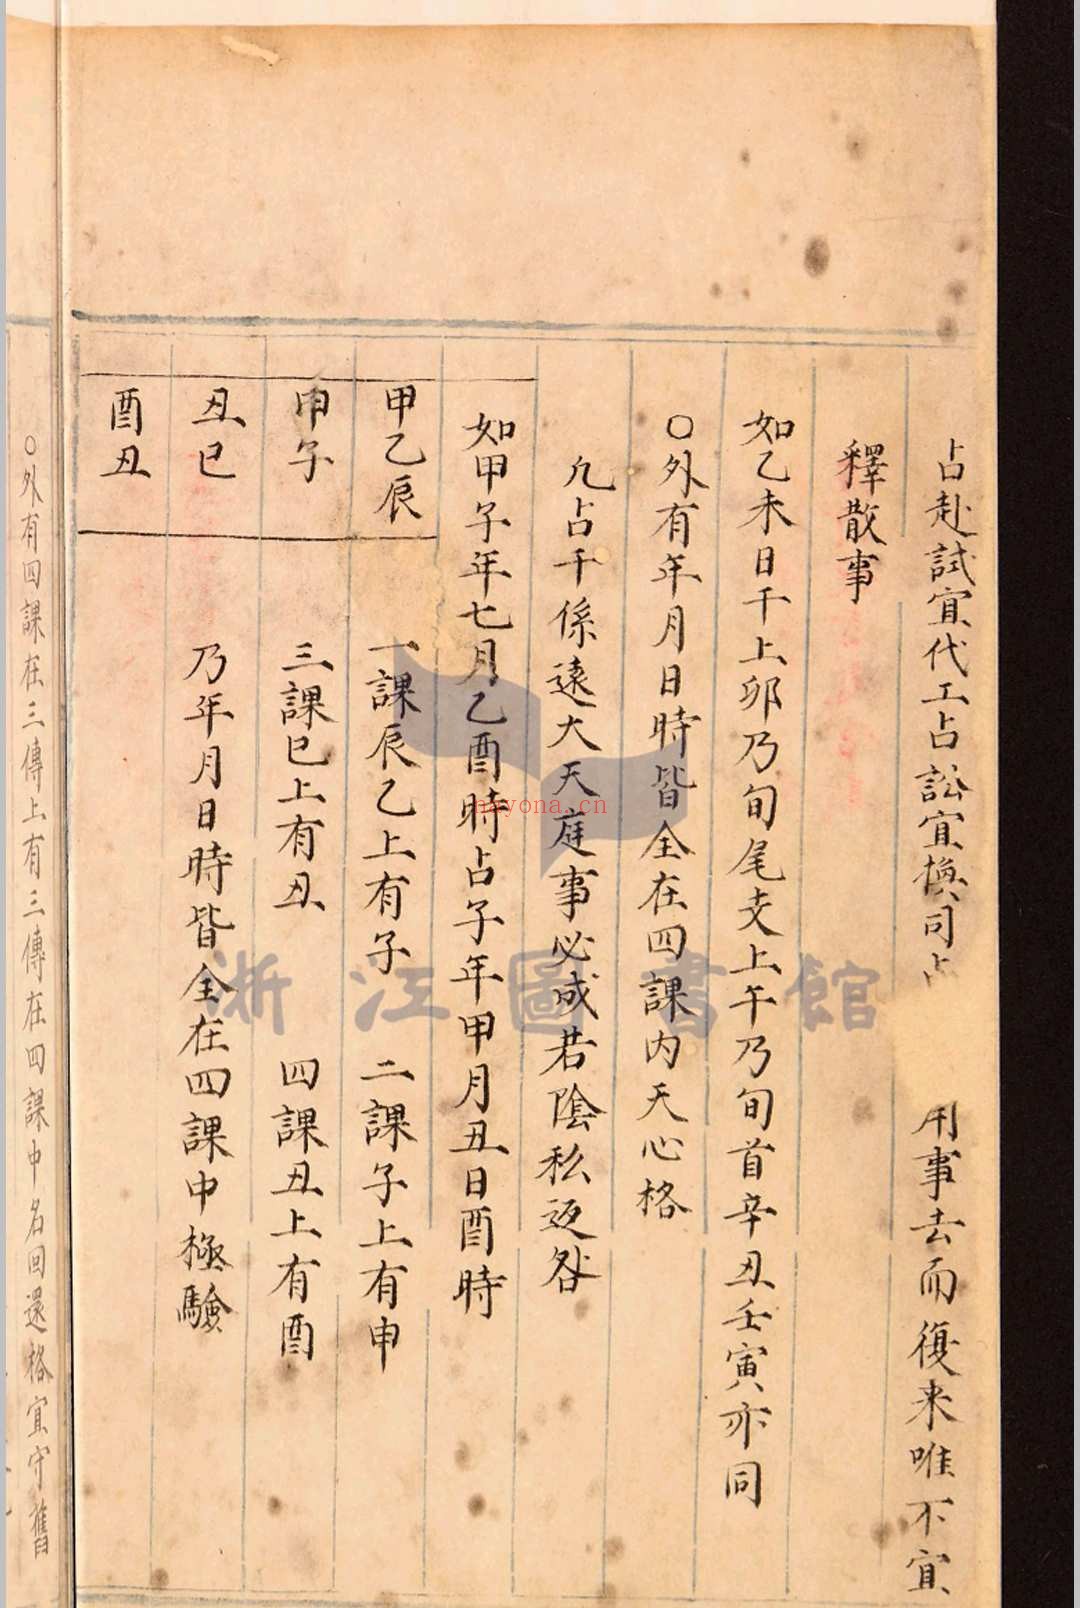 占赴試宜代工占訟宜換司占用事去而復来唯不宜
釋散事
如乙未日干上卯乃旬尾支上午乃旬首辛丑壬寅亦同
〇外有年月日時皆全在四課内天心格
凢占干係遠大天庭事必成若陰私返咎
如甲子年七月乙酉時占子年甲月丑日酉時
甲乙辰 一課辰乙上有子 二課子上有申
申子 三課巳上有丑 四課丑上有酉
丑巳 乃年月日時皆全在四課中極驗
酉丑
〇外有四課在三傳上有三傳在四課中名回還格宜守舊
浙江圖書館
nayona.cn